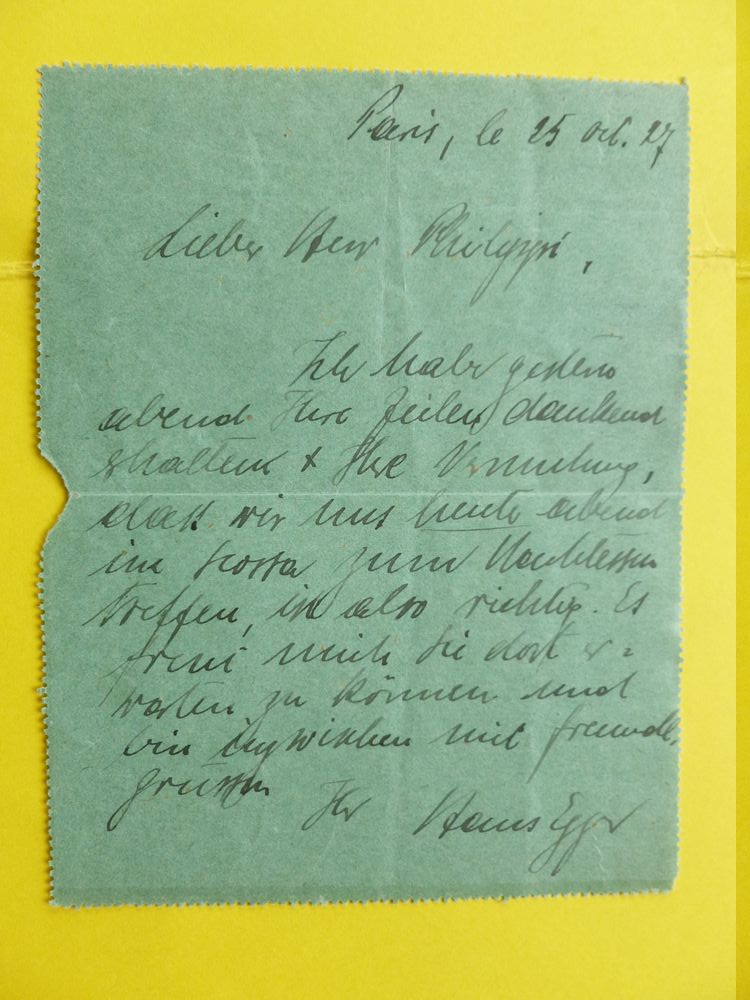 Paris, le 25 oct. 27
Lieber Herr Philippi,
Ich habe gestern
abend Ihre Zeilen dankend
erhalten & Ihre Vermutung,
dass wir uns heute abend
im zum Nachtessen
treffen, ist also richtig. Es
freut mich Sie dort er=
warten zu können und
bin inzwischen mit freundl.
Grüssen
Ihr Hans Egger